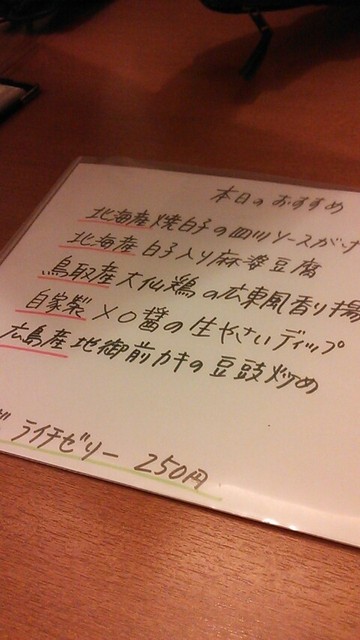 本日のおすすめ
北海産焼白子の四川ソースがけ
北海産白子入り麻婆豆腐
鳥取産大仙鶏の広東風香り揚
自家製XO醤の生やさいディップ
広島産地御前カキの豆豉炒め
ライチゼリー 250円